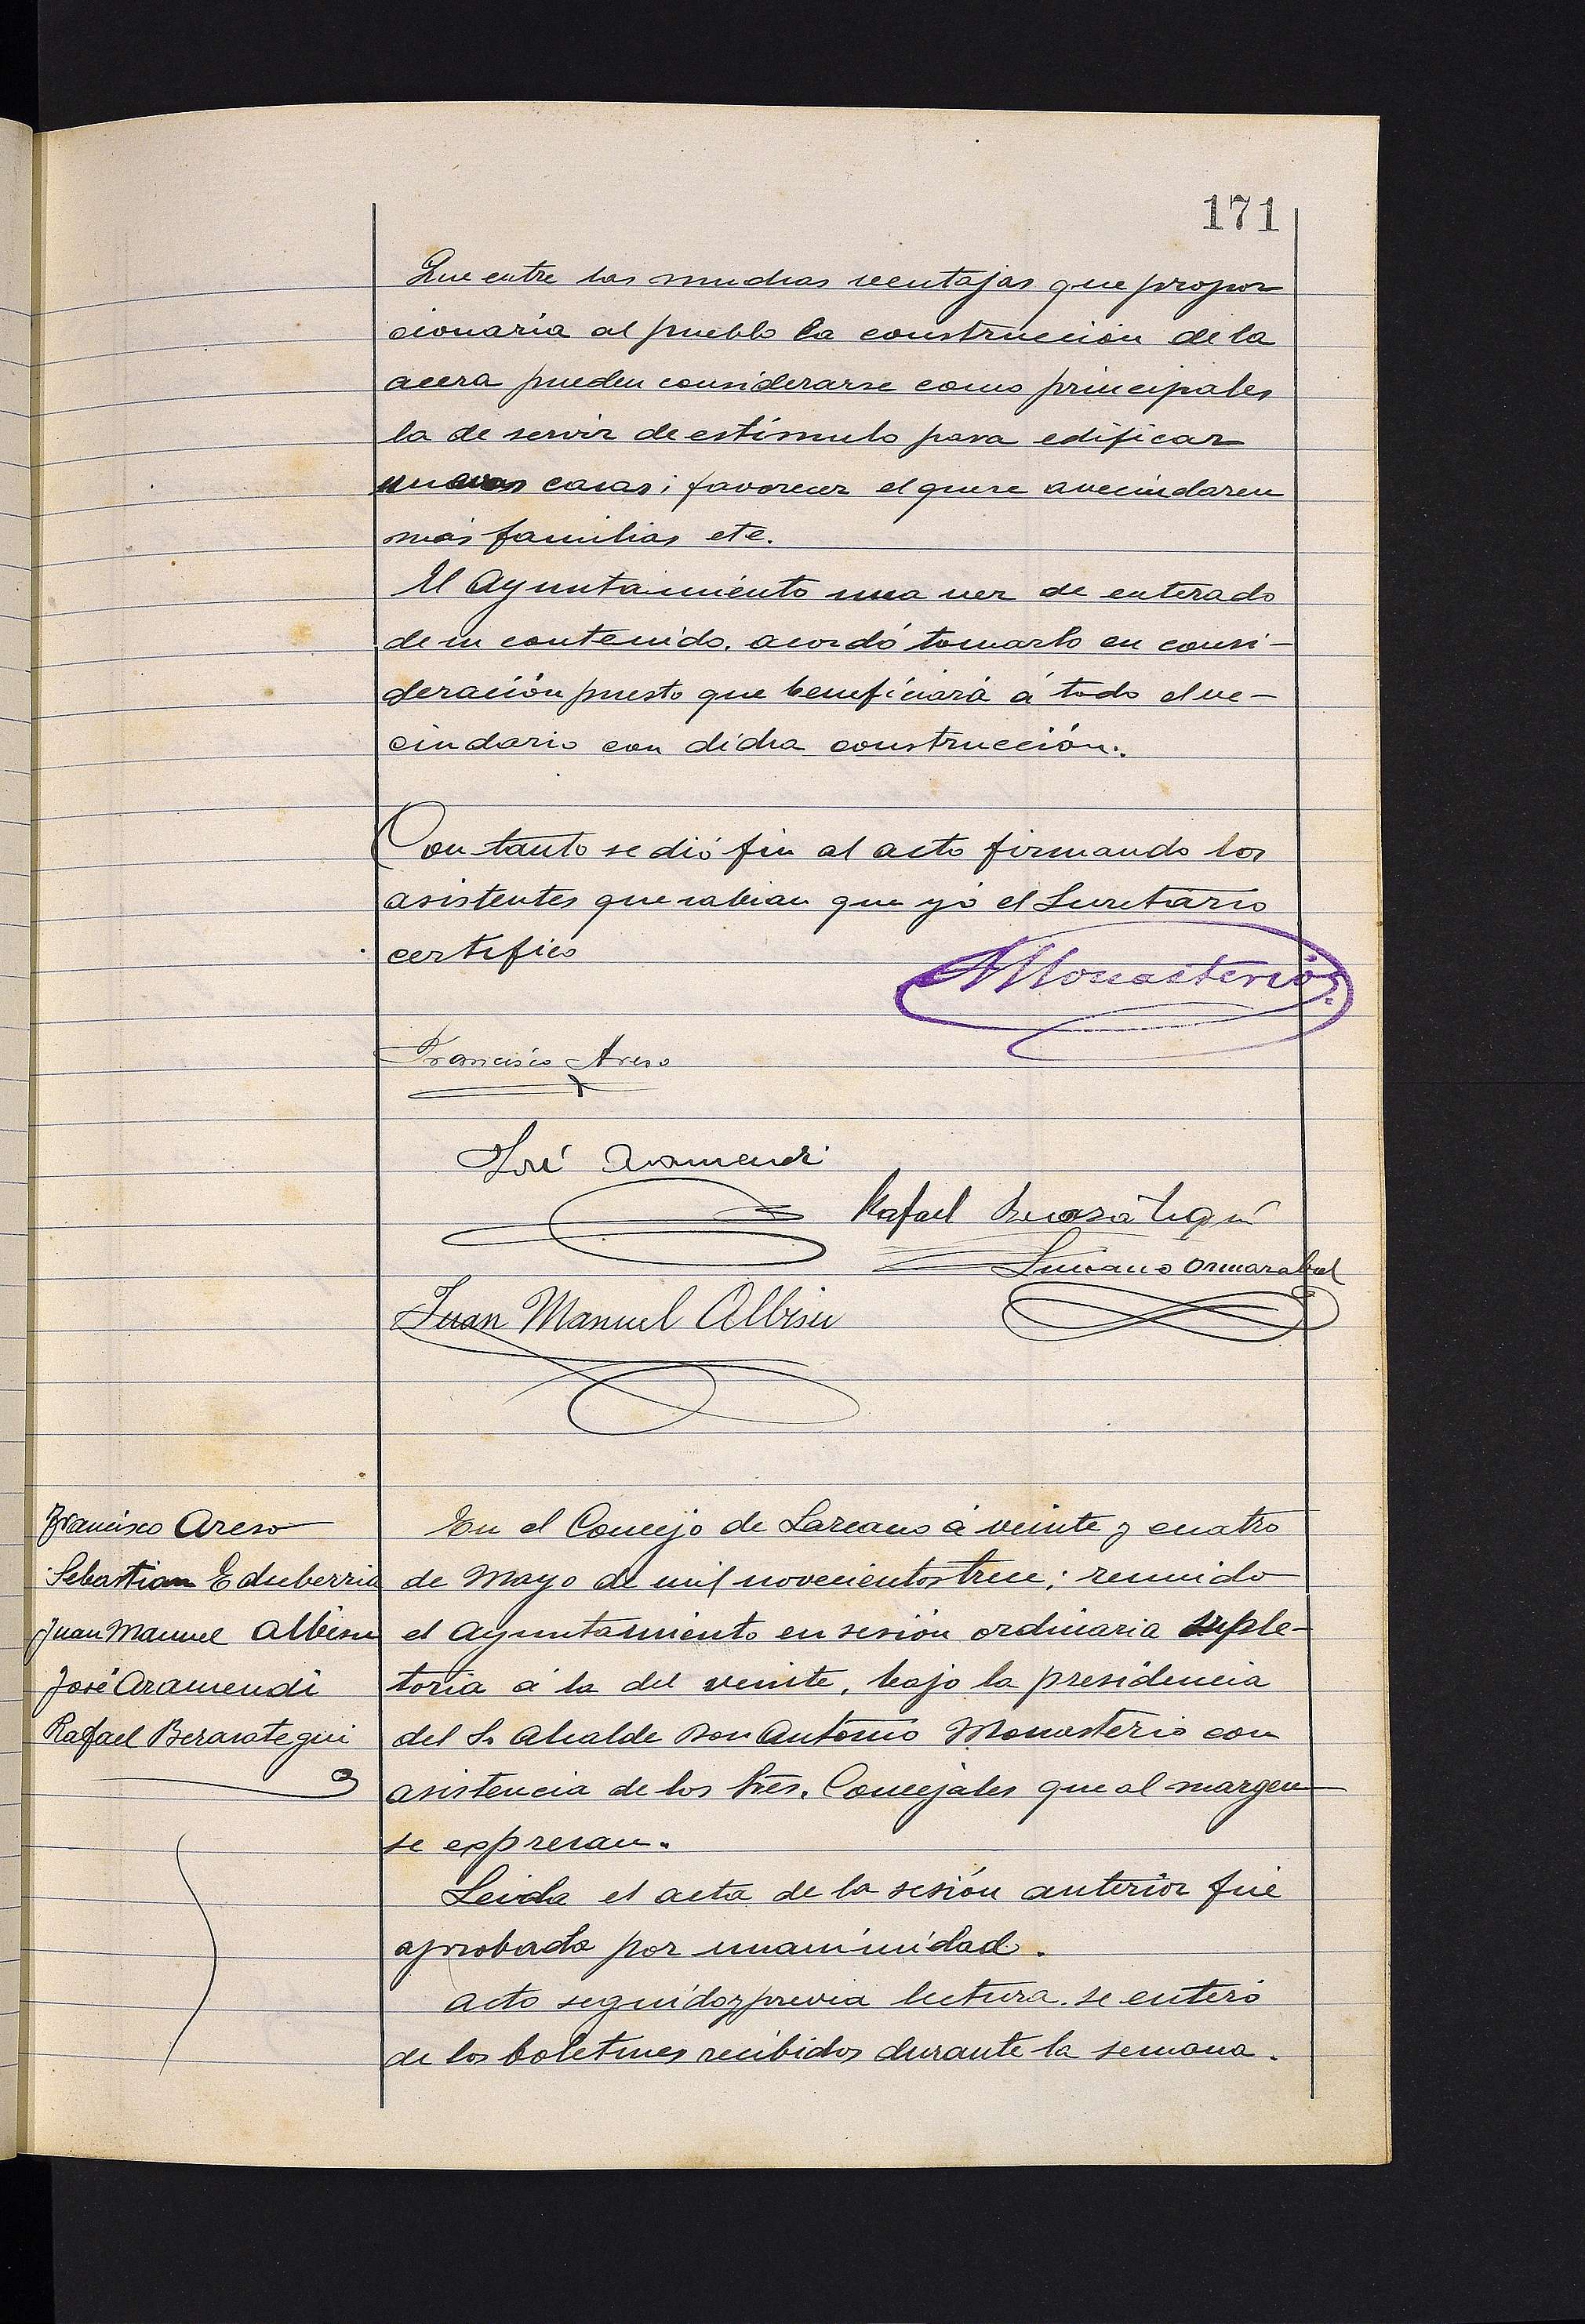 171
Que entre las muchas ventajas que propor
cionaría al pueblo la construcción de la
acera pueden considerarse como principales
la de servir de estímulo para edificar
nuevas casas; favorecer el que se avecindaren
más familias etc.
El Ayuntamiento una vez de enterado
de su contenido. acordó tomarlo en consi-
deración puesto que beneficiará á todo el ve-
cindario con dicha construcción.
Con tanto se dió fin al acto firmando los
asistentes que sabian que yó el Secretario
certifico
AMonasterio
Francisco Areso
José Aramendi
Rafael Berasategui
Luciano Ormazabal
Juan Manuel Albisu
Francisco Areso
Sebastian Echeberria
Juan Manuel Albisu
José Aramendi
Rafael Berasategui
En el Concejo de Lazcano á veinte y cuatro
de Mayo de mil novecientos trece; reunido
el Ayuntamiento en sesión ordinaria suple-
toria á la del veinte, bajo la presidencia
del Sr Alcalde Don Antonio Monasterio con
asistencia de los Sres. Concejales que al margen
se expresan.
Leida el acta de la sesión anterior fué
aprobada por unanimidad.
Acto seguido y previa lectura. se enteró
de los boletines recibidos durante la semana.